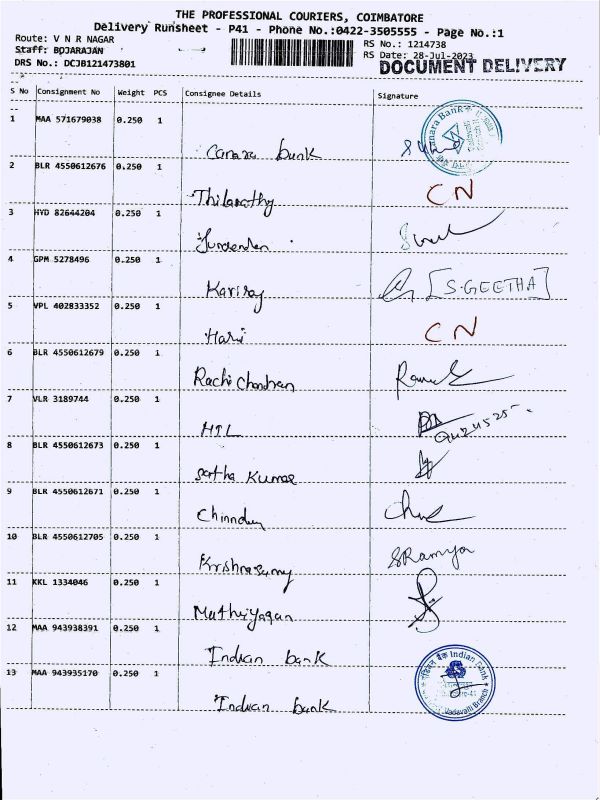 THE PROFESSIONAL COURIERS, COIMBATORE
Delivery Runsheet - P41 - Phone No.:0422-3505555 - Page No.:1
Route: V N R NAGAR
RS No.: 1214738
Staff: BOJARAJAN
RS Date: 28-Jul-2023
DRS No.: DCJB121473801
DOCUMENT DELIVERY
S No Consignment No Weight PCS Consignee Details Signature
1 MAA 571679038 0.250 1
Canara bank
2 BLR 4550612676 0.250 1
CN
Thilavathy
3 HYD 82644204 0.250 1
4 GPM 5278496 0.250 1
Kaviraj [S.GEETHA]
5 VPL 402833352 0.250 1
Hari CN
6 BLR 4550612679 0.250 1
Rachi Chandran
7 VLR 3189744 0.250 1
HIL
8 BLR 4550612673 0.250 1
Satha Kumar
9 BLR 4550612671 0.250 1
10 BLR 4550612705 0.250 1
SRamya
11 KKL 1334046 0.250 1
12 MAA 943938391 0.250 1
Indian bank
इंडियन बैंक Indian Bank
13 MAA 943935170 0.250 1
Vadavalli Branch
Indian bank